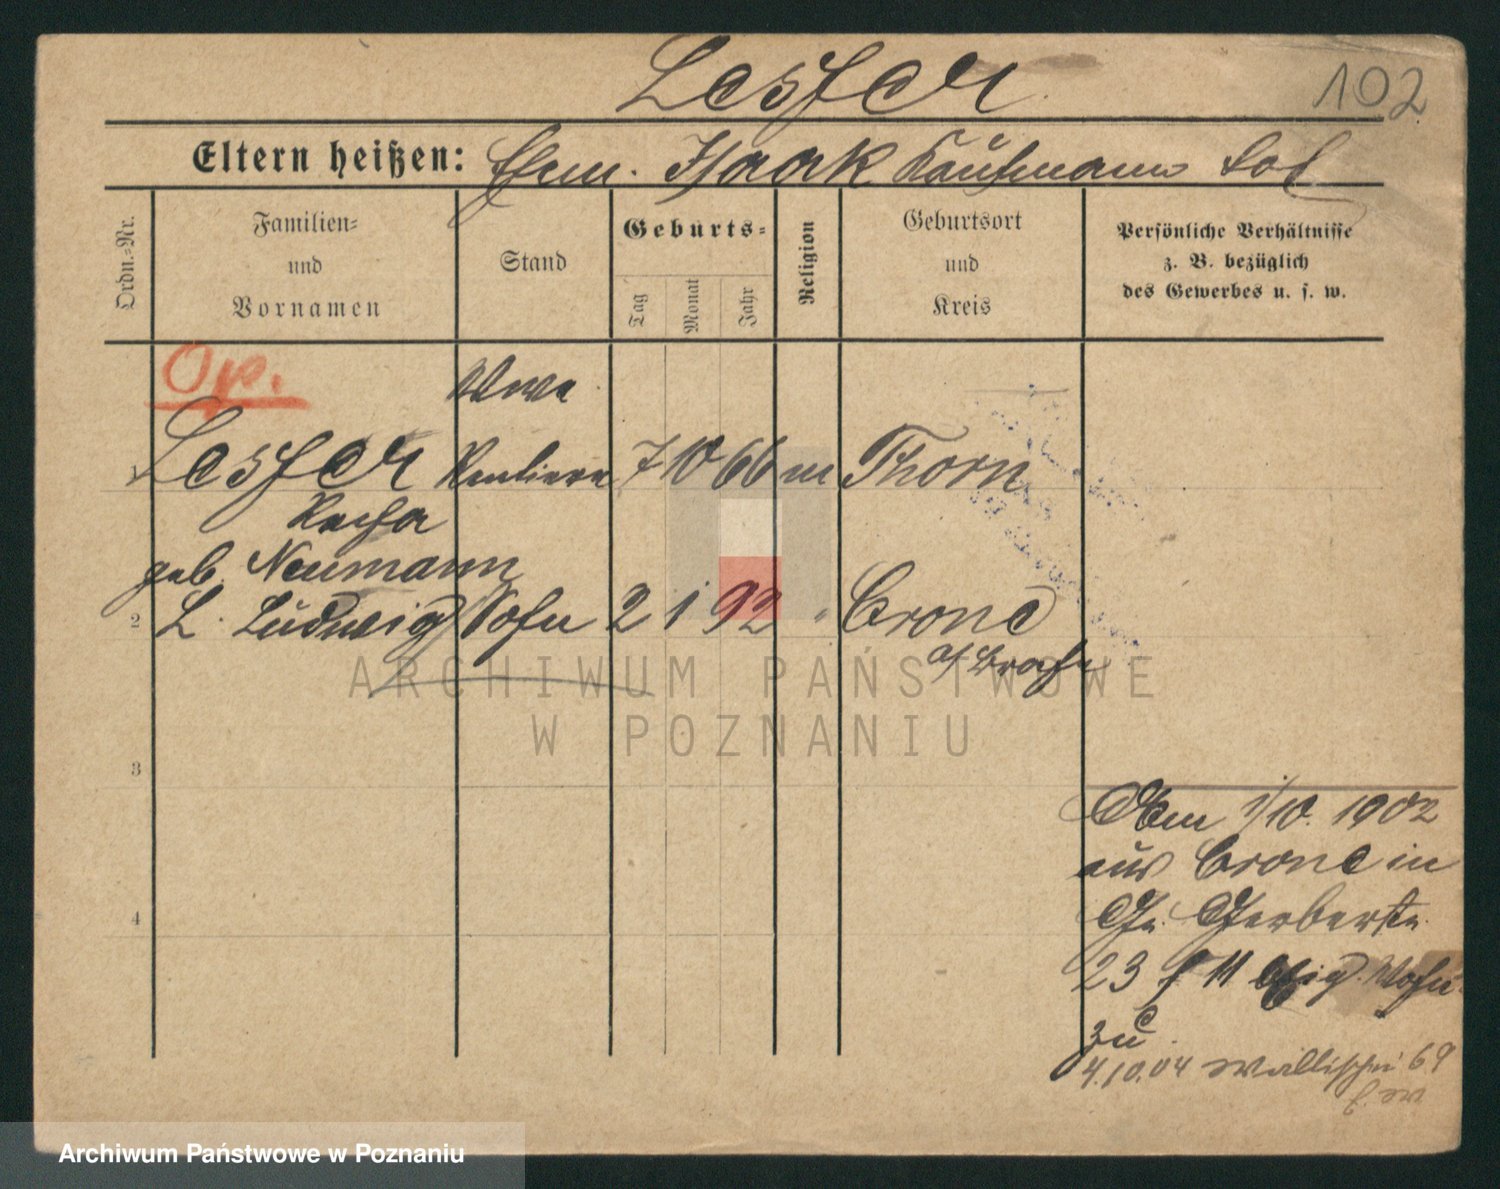 Lesser
102
Eltern heißen: Ehem. Isaak Kaufmann
Ordn.-Nr.
Familien-
und
Vornamen
Stand
Geburts-
Tag
Monat
Jahr
Religion
Geburtsort
und
Kreis
Persönliche Verhältnisse
z. B. bezüglich
des Gewerbes u. s. w.
Op.
Wwe
Lesser Rentiere 7 10 66 m Thorn
Recha
geb. Neumann
2 L. Ludwig Sohn 2 1 92 " Crone
a/ Brahe
3
4
1/10. 1902
aus Crone in
Gr. Gerberstr.
23
zu
4.10.04 Wallischei 69
ARCHIWUM PAŃSTWOWE
W POZNANIU
Archiwum Państwowe w Poznaniu